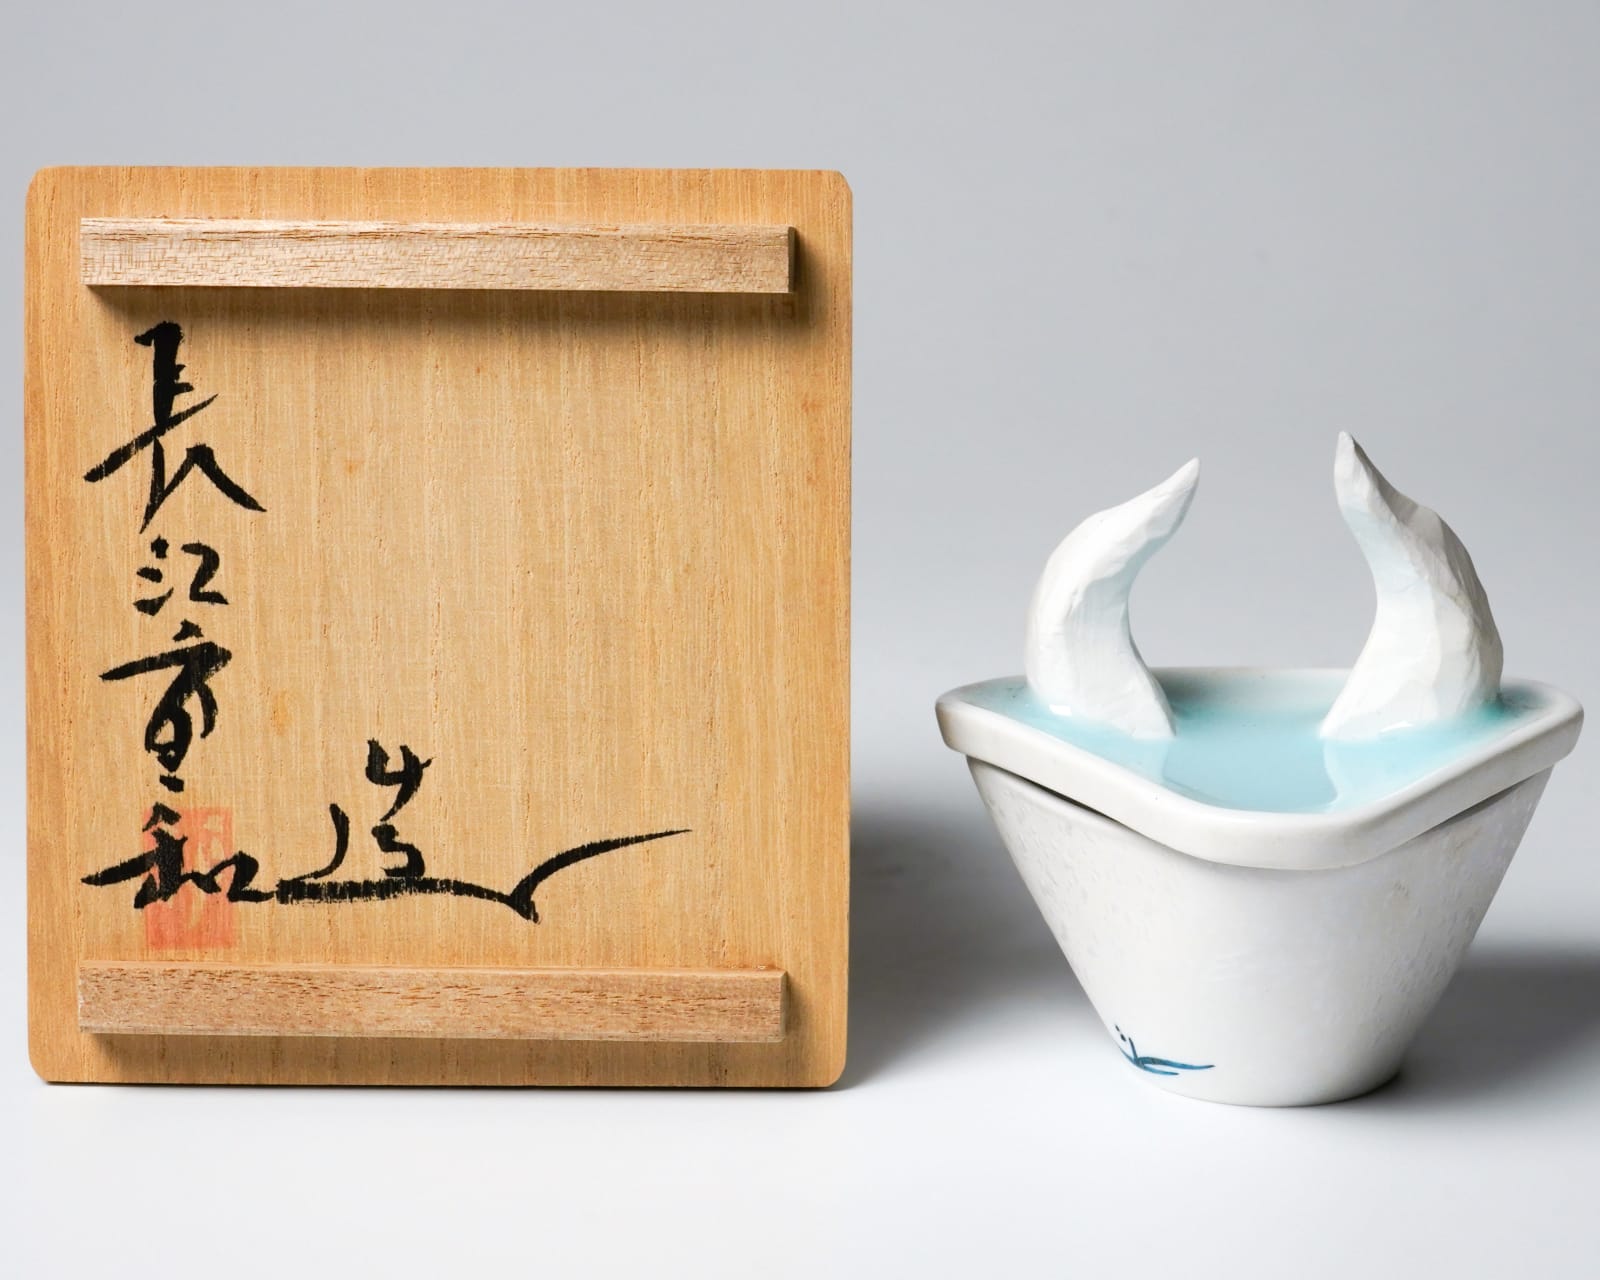 長江重和
造